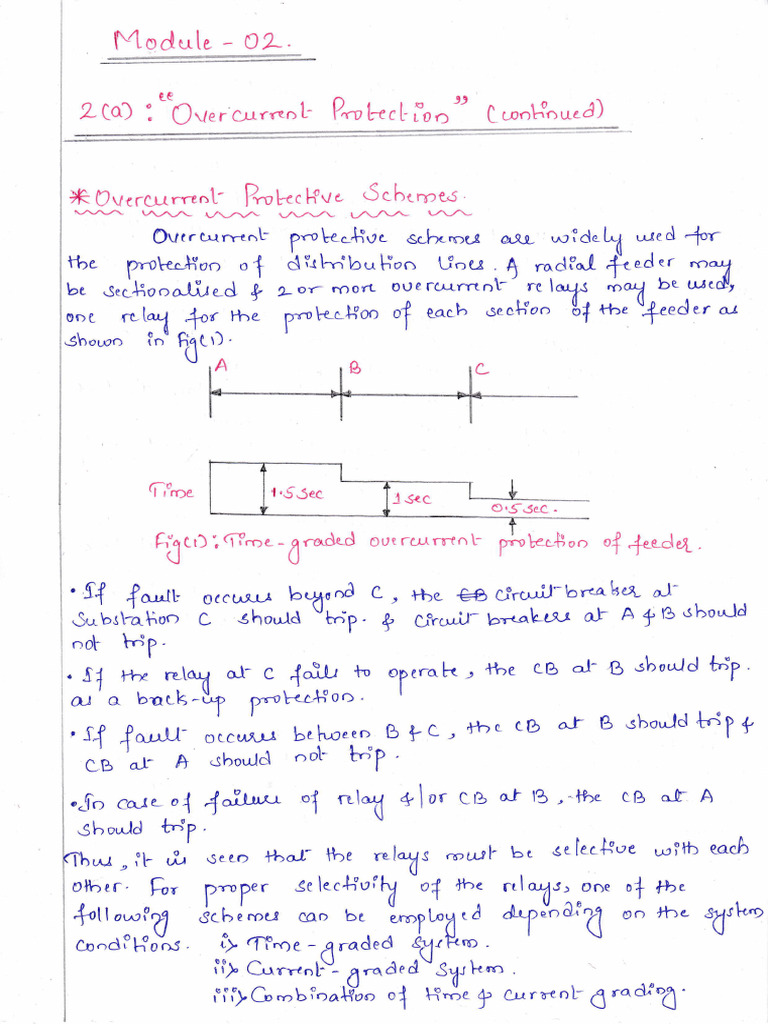 Module - 02.
2(a) : "Overcurrent Protection" (continued)
*Overcurrent Protective Schemes.
Overcurrent protective schemes are widely used for
the protection of distribution lines. A radial feeder may
be sectionalised & 2 or more overcurrent relays may be used,
one relay for the protection of each section of the feeder as
shown in Fig(1).
A B C
Time 1.5 sec 1 sec 0.5 sec.
Fig(1): Time-graded overcurrent protection of feeder.
• If fault occurs beyond C, the CB circuit breaker at
Substation C should trip. & circuit breakers at A & B should
not trip.
• If the relay at C fails to operate, the CB at B should trip.
as a back-up protection.
• If fault occurs between B & C, the CB at B should trip &
CB at A should not trip.
• In case of failure of relay &/or CB at B, the CB at A
should trip.
Thus, it is seen that the relays must be selective with each
other. For proper selectivity of the relays, one of the
following schemes can be employed depending on the system
conditions. i> Time-graded system.
ii> Current-graded system.
iii> Combination of time & current grading.